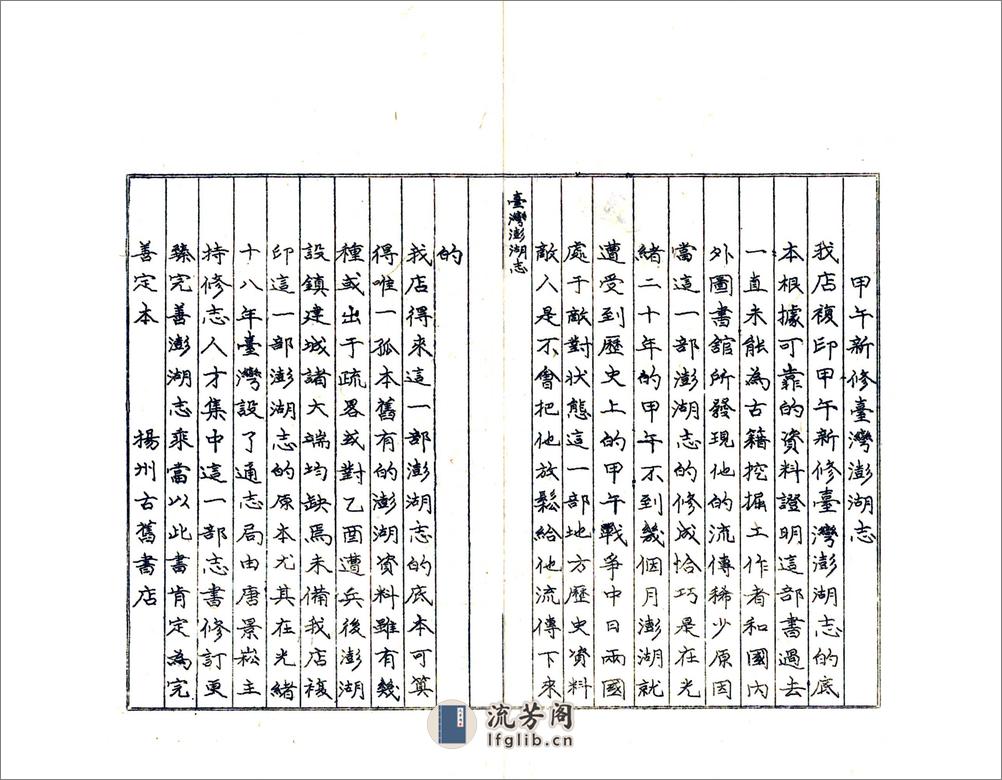 甲午新修臺灣澎湖志
我店複印甲午新修臺灣澎湖志的底
本根據可靠的資料證明這部書過去
一直未能為古籍挖掘工作者和國內
外圖書舘所發現他的流傳稀少原因
當這一部澎湖志的修成恰巧是在光
緒二十年的甲午不到幾個月澎湖就
遭受到歷史上的甲午戰爭中日兩國
處于敵對狀態這一部地方歷史資料
敵人是不會把他放鬆給他流傳下來
臺灣澎湖志
的
我店得來這一部澎湖志的底本可算
得唯一孤本舊有的澎湖資料雖有幾
種或出于疏畧或對乙酉遭兵後澎湖
設鎮建城諸大端均缺焉未備我店複
印這一部澎湖志的原本尤其在光緒
十八年臺灣設了通志局由唐景崧主
持修志人才集中這一部志書修訂更
臻完善澎湖志乘當以此書肯定為完
善定本 揚州古舊書店
流芳阁
lfglib.cn